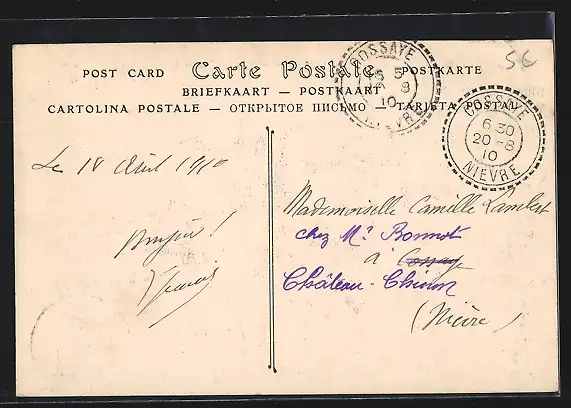 56
COSSAYE
5
8
10
NIEVRE
POST CARD Carte Postale POSTKARTE
BRIEFKAART — POSTKAART
CARTOLINA POSTALE — ОТКРЫТОЕ ПИСЬМО — TARJETA POSTAL
COSSAYE
6 30
20 - 8
10
NIEVRE
Le 18 Août 1910
Bonjour !
Mademoiselle Camille Lambert
chez Mr Bonnot
à Cossaye
Château-Chinon
(Nièvre)